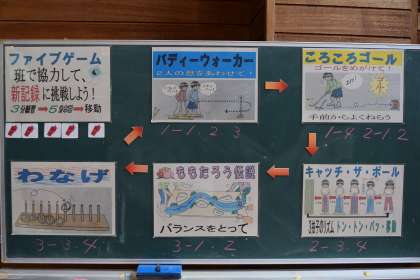 ファイブゲーム
班で協力して、
新記録に挑戦しよう!
3分観戦→5分記録→移動
バディーウォーカー
2人の息をあわせて!
1-1、2、3
ころころゴール
ゴールをめがけて!
手前からよくねらう
1-4 2-1、2
キャッチ・ザ・ボール
3拍子のリズム トン・トン・パッ・移動
2-3、4
ももたろう伝説
バランスをとって
3-1、2
わなげ
3-3、4